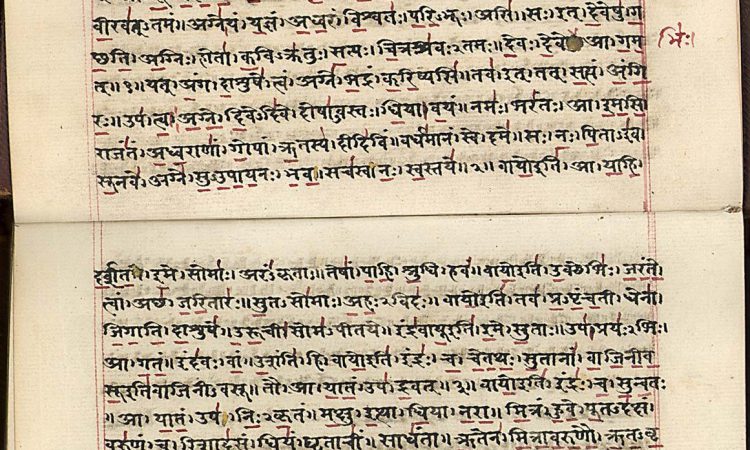 वीरवत्ऽतमं॥ अग्ने। यं। यज्ञं। अध्वरं। विश्वतः। परिऽभूः। असि॥ सः। इत्। देवेषु। ग
च्छति॥ अग्निः। होता। कविऽक्रतुः। सत्यः। चित्रश्रवःऽतमः॥ देवः। देवे आ। गम
भिः।
त्॥१॥ यत्। अंग। दाशुषे। त्वं। अग्ने। भद्रं। करिष्यसि॥ तव। इत्। तत्। सत्यं। अंगि
रः॥ उप। त्वा। अग्ने। दिवेऽदिवे। दोषाऽवस्तः। धिया। वयं॥ नमः। भरंतः। आ। इमसि
राजंतं। अध्वराणां। गोपां। ऋतस्य। दीदिविं॥ वर्धमानं। स्वे। दमे॥ सः। नः। पिताऽइव
सूनवे। अग्ने। सुऽउपायनः। भव॥ सचस्व। नः। स्वस्तये॥२॥ वायो इति। आ। याहि
इमे। सोमाः। अरंऽकृताः॥ तेषां। पाहि। श्रुधि। हवं॥ वायो इति। उक्थेभिः। जरंते
त्वां। अच्छ। जरितारः॥ सुतऽसोमाः। अहःऽविदः॥ वायो इति। तव। प्रऽपृंचती। धेना
जिगाति। दाशुषे॥ उरूची। सोमऽपीतये॥ इंद्रवायू इति। इमे। सुताः॥ उप। प्रयःऽभिः।
आ। गतं॥ इंदवः। वां। उशंति। हि॥ वायो इति। इंद्रः। च। चेतथः। सुतानां। वाजिनीव
सू इति वाजिनीऽवसू॥ तौ। आ। यातं। उप। द्रवत्॥३॥ वायो इति। इंद्रः। च। सुन्वतः
॥ आ। यातं। उप। निःऽकृतं॥ मक्षु। इत्था। धिया। नरा॥ मित्रं। हुवे। पूतऽदक्षं।
वरुणं। च। रिशादसं। धियं। घृताचीं॥ साधंता॥ ऋतेन। मित्रावरुणौ। ऋतऽवृ